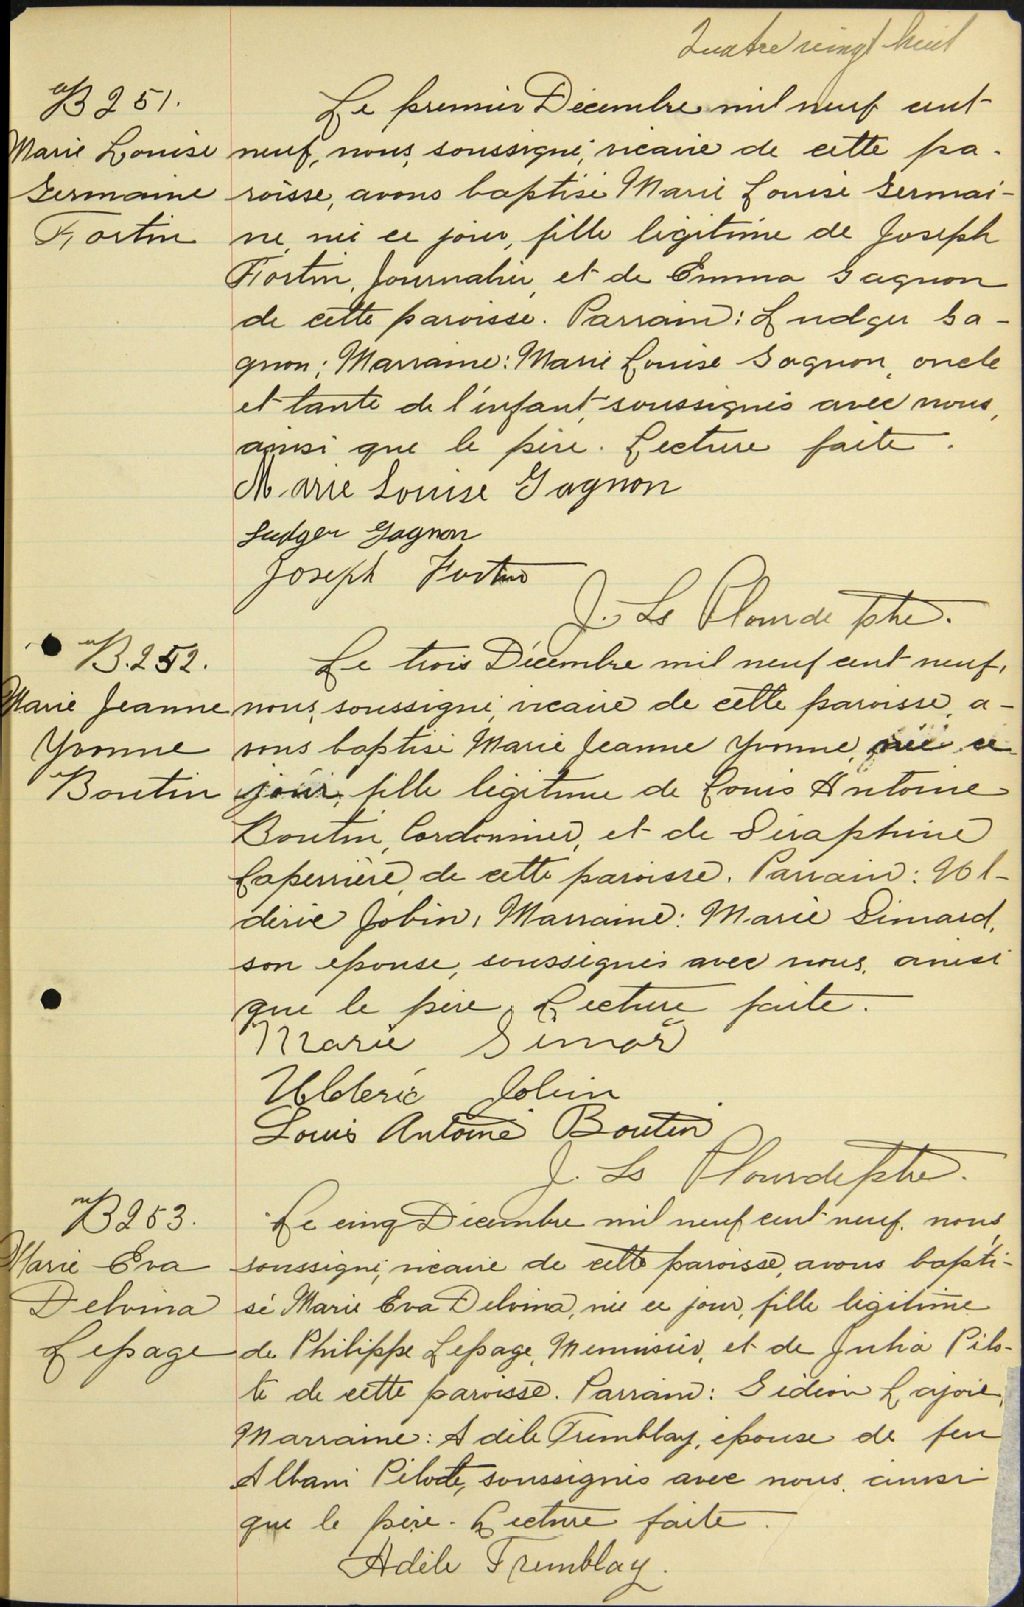 Quatre vingt huit
B 251.
Marie Louise
Germaine
Fortin
Le premier Décembre mil neuf cent
neuf, nous, soussigné, vicaire de cette pa-
roisse, avons baptisé Marie Louise Germai-
ne, née ce jour, fille légitime de Joseph
Fortin, Journalier, et de Emma Gagnon
de cette paroisse. Parrain: Ludger Ga-
gnon; Marraine: Marie Louise Gagnon, oncle
et tante de l'enfant, soussignés avec nous,
ainsi que le père. Lecture faite.
Marie Louise Gagnon
Ludger Gagnon
Joseph Fortin
J. Ls Plourde ptre.
B. 252.
Marie Jeanne
Yvonne
Boutin
Le trois Décembre mil neuf cent neuf,
nous, soussigné, vicaire de cette paroisse, a-
vons baptisé Marie Jeanne Yvonne, née ce
jour, fille légitime de Louis Antoine
Boutin, Cordonnier, et de Séraphine
Laperrière, de cette paroisse. Parrain: Ul-
déric Jobin, Marraine: Marie Simard,
son épouse, soussignés avec nous, ainsi
que le père. Lecture faite.
Marie Simar
Ulderic Jobin
Louis Antoine Boutin
J. Ls Plourde ptre.
B 253.
Marie Eva
Delvina
Lepage
Le cinq Décembre mil neuf cent neuf, nous,
soussigné, vicaire de cette paroisse, avons bapti-
sé Marie Eva Delvina, née ce jour, fille légitime
de Philippe Lepage, Menuisier, et de Julia Pilo-
te de cette paroisse. Parrain: Gédéon Lajoie,
Marraine: Adèle Tremblay, épouse de feu
Albani Pilote, soussignés avec nous, ainsi
que le père. Lecture faite.
Adèle Tremblay.